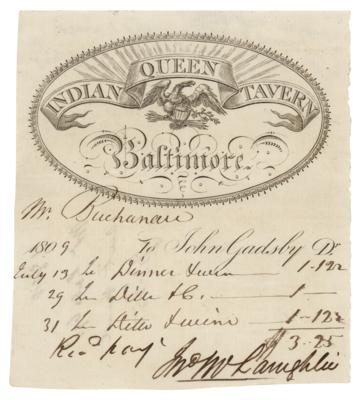 INDIAN QUEEN TAVERN
Baltimore
Mr. Buchanan
1809 To John Gadsby Dr.
July 13 To Dinner & wine 1-12½
29 To Ditto &c. 1
31 To Ditto & wine 1-12½
$3-25
Recd payt
Jno McLaughlin